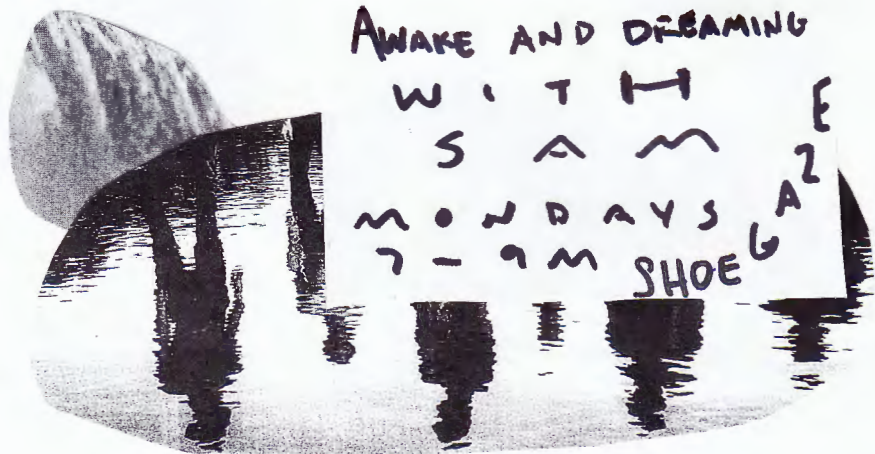 AWAKE AND DREAMING
WITH
SAM
MONDAYS
7-9M
SHOEGAZE